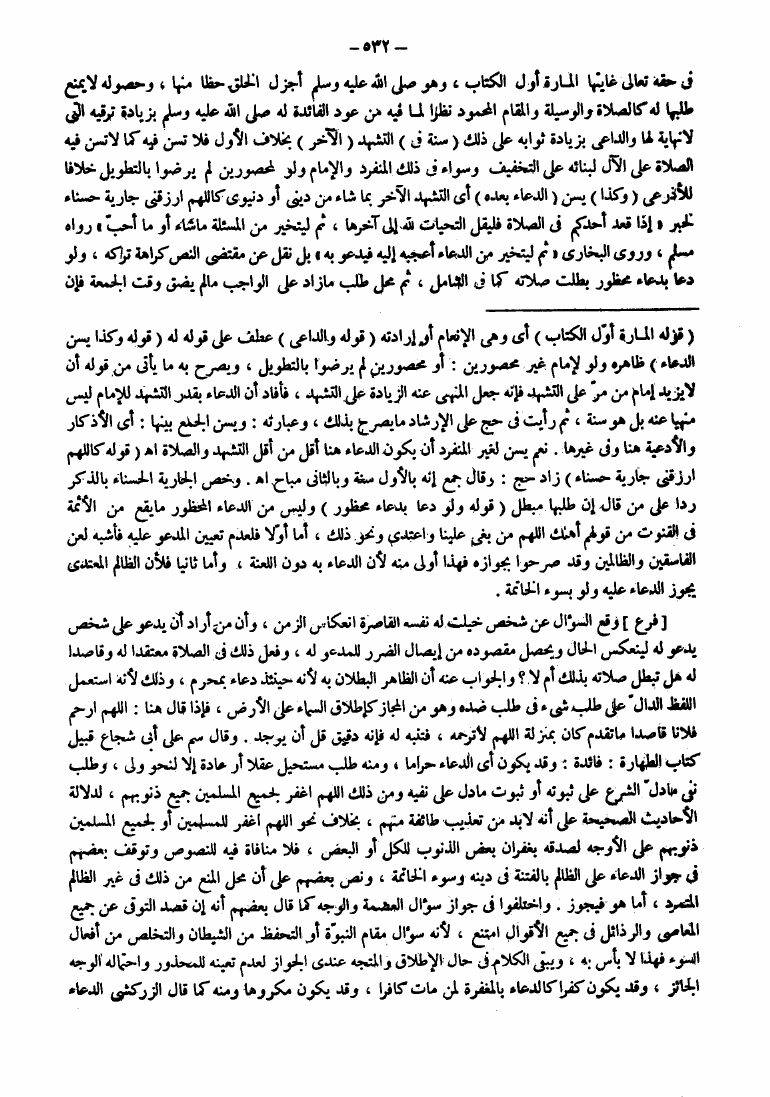 - ٥٣٢ -
فى حقه تعالى غايتها المارة أول الكتاب ، وهو صلى الله عليه وسلم أجزل الخلق حظا منها ، وحصوله لا يمنع
طلبها له كالصلاة والوسيلة والمقام المحمود نظرا لما فيه من عود الفائدة له صلى الله عليه وسلم بزيادة ترقيه التى
لانهاية لها والداعى بزيادة ثوابه على ذلك ( سنة فى ) التشهد ( الآخر ) بخلاف الأول فلا تسن فيه كما لاتسن فيه
الصلاة على الآل لبنائه على التخفيف وسواء فى ذلك المنفرد والإمام ولو لمحصورين لم يرضوا بالتطويل خلافا
للأذرعى ( وكذا ) يسن ( الدعاء بعده ) أى التشهد الآخر بما شاء من دينى أو دنيوى كاللهم ارزقنى جارية حسناء
لخبر « إذا قعد أحدكم فى الصلاة فليقل التحيات لله إلى آخرها ، ثم ليتخير من المسئلة ماشاء أو ما أحبّ » رواه
مسلم ، وروى البخارى « ثم ليتخير من الدعاء أعجبه إليه فيدعو به » بل نقل عن مقتضى النص كراهة تراكه ، ولو
دعا بدعاء محظور بطلت صلاته كما فى الشامل ، ثم محل طلب مازاد على الواجب مالم يضق وقت الجمعة فإن
( قوله المارة أوّل الكتاب ) أى وهى الإنعام أو إرادته ( قوله والداعى ) عطف على قوله له ( قوله وكذا يسن
الدعاء ) ظاهره ولو لإمام غير محصورين : أو محصورين لم يرضوا بالتطويل ، ويصرح به ما يأتى من قوله أن
لايزيد إمام من مرّ على التشهد فإنه جعل المنهى عنه الزيادة على التشهد ، فأفاد أن الدعاء بقدر التشهد للإمام ليس
منهيا عنه بل هو سنة ، ثم رأيت فى حج على الإرشاد مايصرح بذلك ، وعبارته : ويسن الجمع بينها : أى الأذكار
والأدعية هنا وفى غيرها . نعم يسن لغير المنفرد أن يكون الدعاء هنا أقل من أقل التشهد والصلاة اه ( قوله كاللهم
ارزقنى جارية حسناء ) زاد حج : وقال جمع إنه بالأول سنة وبالثانى مباح اه . وخص الجارية الحسناء بالذكر
ردا على من قال إن طلبها مبطل ( قوله ولو دعا بدعاء محظور ) وليس من الدعاء المحظور مايقع من الأئمة
فى القنوت من قولهم أهلك اللهم من بغى علينا واعتدى ونحو ذلك ، أما أوّلا فلعدم تعيين المدعو عليه فأشبه لعن
الفاسقين والظالمين وقد صرحوا بجوازه فهذا أولى منه لأن الدعاء به دون اللعنة ، وأما ثانيا فلأن الظالم المعتدى
يجوز الدعاء عليه ولو بسوء الخاتمة .
[ فرع ] وقع السؤال عن شخص خيلت له نفسه القاصرة انعكاس الزمن ، وأن من أراد أن يدعو على شخص
يدعو له لينعكس الحال ويحصل مقصوده من إيصال الضرر للمدعو له ، وفعل ذلك فى الصلاة معتقدا له وقاصدا
له هل تبطل صلاته بذلك أم لا ؟ والجواب عنه أن الظاهر البطلان به لأنه حينئذ دعاء بمحرم ، وذلك لأنه استعمل
اللفظ الدالّ على طلب شىء فى طلب ضده وهو من المجاز كإطلاق السماء على الأرض ، فإذا قال هنا : اللهم ارحم
فلانا قاصدا ماتقدم كان بمنزلة اللهم لاترحمه ، فتنبه له فإنه دقيق قل أن يوجد . وقال سم على أبى شجاع قبيل
كتاب الطهارة : فائدة : وقد يكون أى الدعاء حراما ، ومنه طلب مستحيل عقلا أو عادة إلا لنحو ولى ، وطلب
نفى مادلّ الشرع على ثبوته أو ثبوت مادل على نفيه ومن ذلك اللهم اغفر لجميع المسلمين جميع ذنوبهم ، لدلالة
الأحاديث الصحيحة على أنه لابد من تعذيب طائفة منهم ، بخلاف نحو اللهم اغفر للمسلمين أو لجميع المسلمين
ذنوبهم على الأوجه لصدقه بغفران بعض الذنوب للكل أو البعض ، فلا منافاة فيه للنصوص وتوقف بعضهم
فى جواز الدعاء على الظالم بالفتنة فى دينه وسوء الخاتمة ، ونص بعضهم على أن محل المنع من ذلك فى غير الظالم
المتمرد ، أما هو فيجوز . واختلفوا فى جواز سؤال العصمة والوجه كما قال بعضهم أنه إن قصد التوقى عن جميع
المعاصى والرذائل فى جميع الأقوال امتنع ، لأنه سؤال مقام النبوّة أو التحفظ من الشيطان والتخلص من أفعال
السوء فهذا لا بأس به ، ويبقى الكلام فى حال الإطلاق والمتجه عندى الجواز لعدم تعينه للمحذور واحتماله الوجه
الجائز ، وقد يكون كفرا كالدعاء بالمغفرة لمن مات كافرا ، وقد يكون مكروها ومنه كما قال الزركشى الدعاء